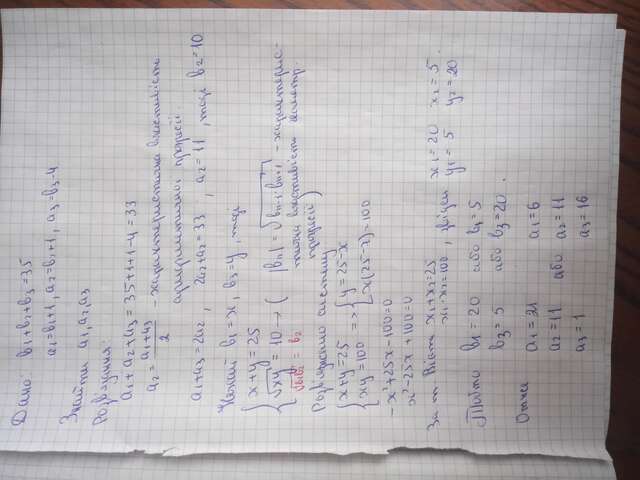 Дано: b₁+b₂+b₃=35
a₁=b₁+1, a₂=b₂+1, a₃=b₃-4
Знайти a₁, a₂, a₃
Розв'язання:
a₁+a₂+a₃=35+1+1-4=33
a₂=(a₁+a₃)/2 - характеристична властивість
арифметичної прогресії.
a₁+a₃=2a₂, 2a₂+a₂=33, a₂=11, тоді b₂=10
Нехай b₁=x, b₃=y, тоді
{x+y=25
{√xy=10 → ( |bₙ|=√bₙ₋₁·bₙ₊₁ - характерис-
тична властивість геометр.
прогресії)
√b₁b₃ = b₂
Розв'яжемо систему
{x+y=25 => {y=25-x
{xy=100 {x(25-x)=100
-x²+25x-100=0
x²-25x+100=0
За т. Вієта x₁+x₂=25
x₁·x₂=100, звідки x₁=20 x₂=5.
y₁=5 y₂=20
Тобто b₁=20 або b₁=5
b₃=5 або b₃=20.
Отже a₁=21 a₁=6
a₂=11 або a₂=11
a₃=1 a₃=16